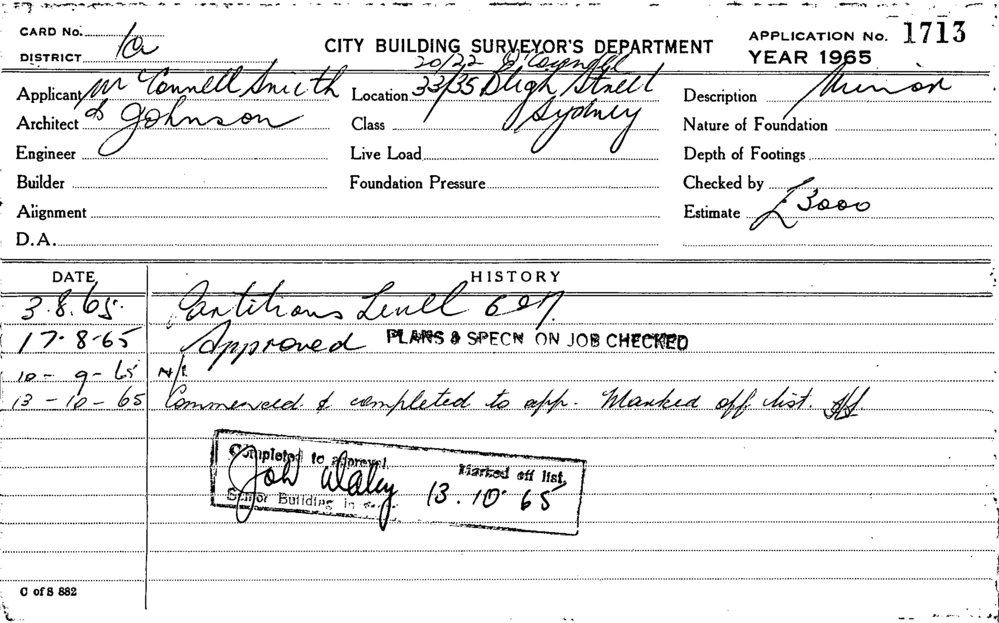 CARD No.
DISTRICT 1a
CITY BUILDING SURVEYOR'S DEPARTMENT
APPLICATION No. 1713
YEAR 1965
20/22 O'Connell
Applicant Mc Connell Smith
Location 33/35 Bligh Street
Description Minor
Architect & Johnson
Class Sydney
Nature of Foundation
Engineer
Live Load
Depth of Footings
Builder
Foundation Pressure
Checked by
Alignment
Estimate £3000
D.A.
DATE HISTORY
3.8.65. Partitions Level 6
17-8-65 Approved PLANS & SPECN ON JOB CHECKED
10-9-65 N/C
13-10-65 Commenced & completed to app. Marked off list.
Completed to approval. Marked off list,
13.10.65
Senior Building
C of S 882